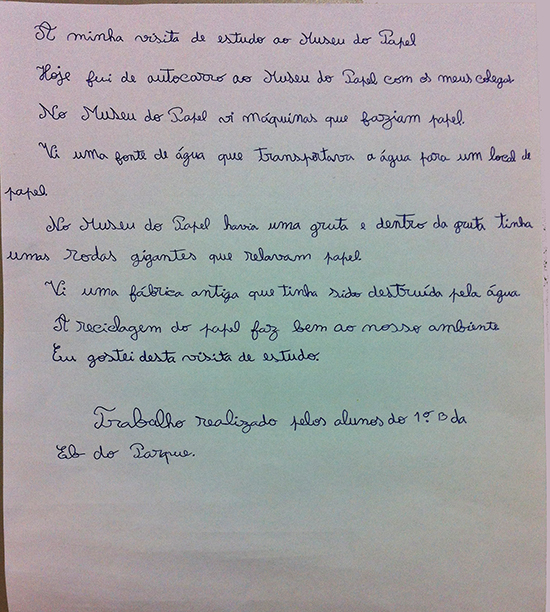 A minha visita de estudo ao Museu do Papel
Hoje fui de autocarro ao Museu do Papel com os meus colegas
No Museu do Papel vi máquinas que faziam papel.
Vi uma fonte de água que transportava a água para um local de
papel.
No Museu do Papel havia uma gruta e dentro da gruta tinha
umas rodas gigantes que relavam papel
Vi uma fábrica antiga que tinha sido destruída pela água
A reciclagem do papel faz bem ao nosso ambiente
Eu gostei desta visita de estudo.
Trabalho realizado pelos alunos do 1.º B da
Eb do Parque.